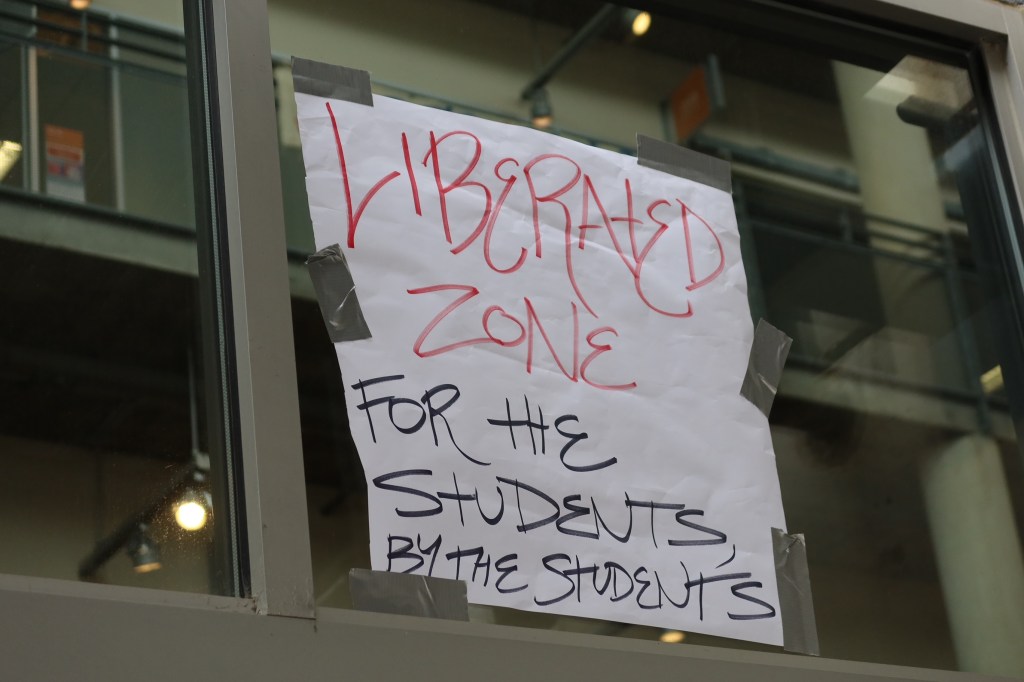 LIBERATED
ZONE
FOR THE
STUDENTS,
BY THE STUDENTS